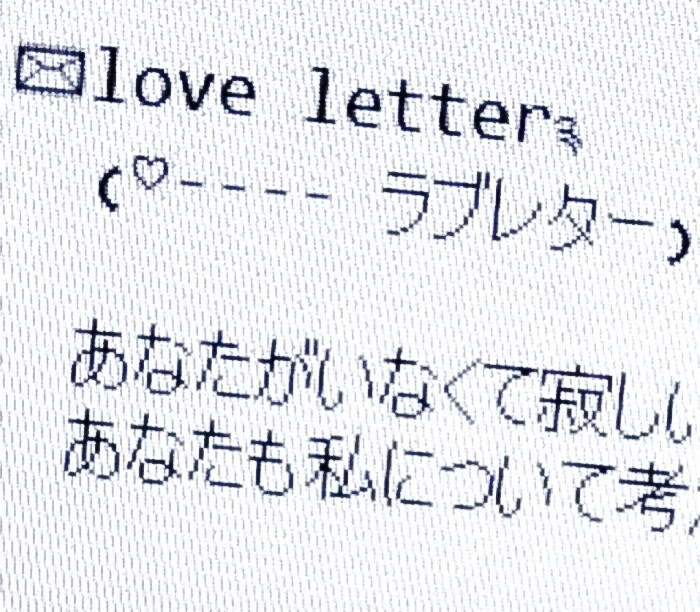 ✉love letter
(♡---- ラブレター)
あなたがいなくて寂し
あなたも私について考